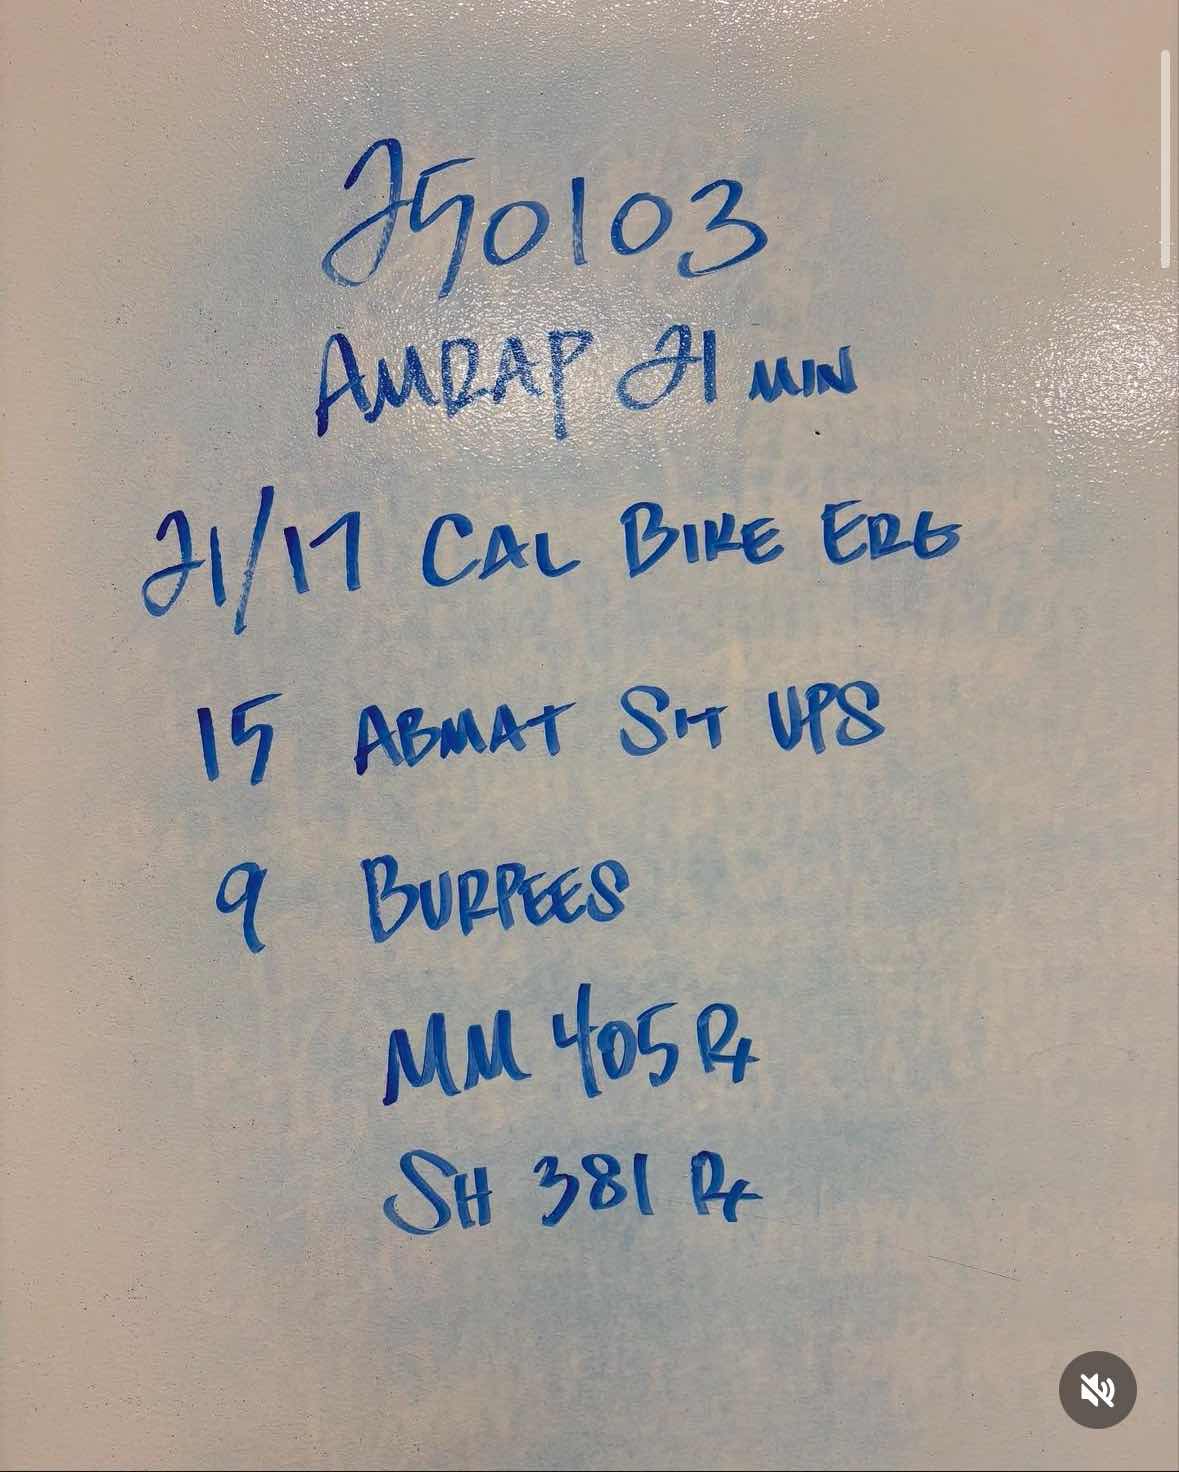 250103
AMRAP 21 MIN
21/17 CAL BIKE ERG
15 ABMAT SIT UPS
9 BURPEES
MM 405 Rx
SH 381 Rx